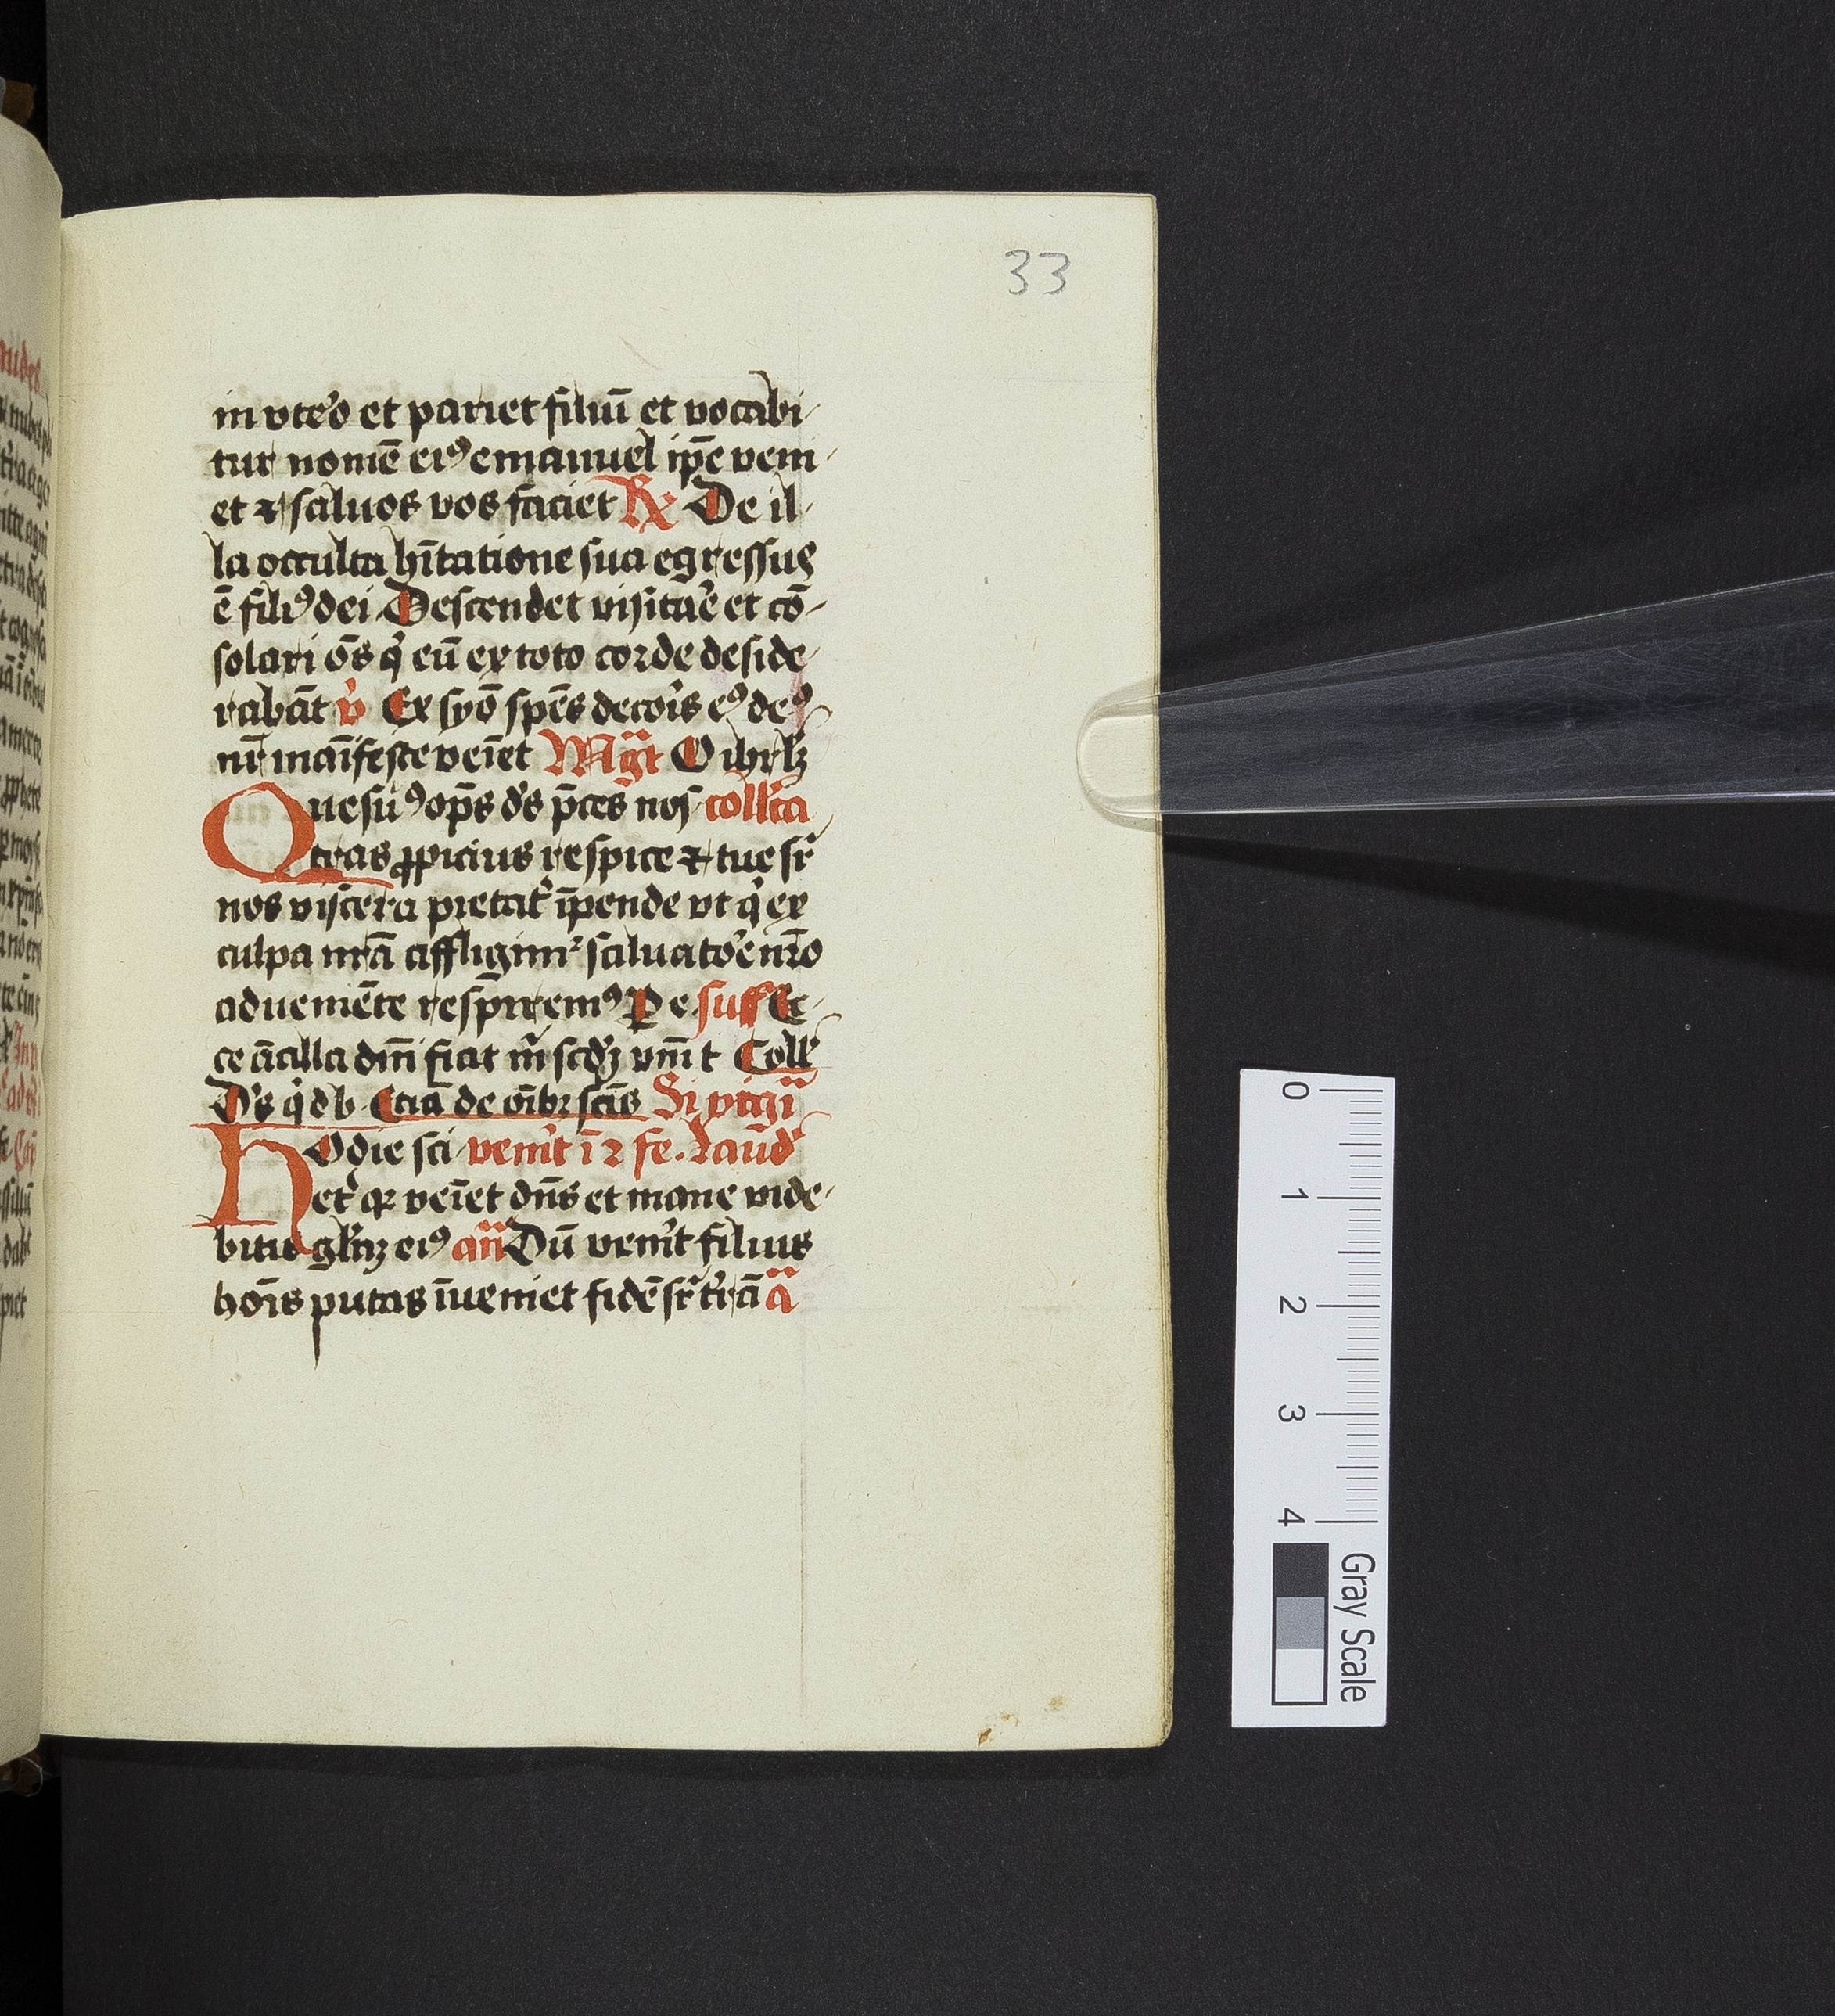 33
in vtēo et pariet filiū et vocabi-
tur nomē eiꝰ emanuel ip̄e veni-
et ⁊ saluos vos faciet R̷ De il-
la occulta hītatione sua egressus
ē filiꝰ dei Descendet visitae̾ et cō-
solari om̄s q̇ eū ex toto corde deside-
rabāt v̾ Ex syō sp̄es decoīs eꝰ deꝰ
nr̄ maīfeste veīet Mag̃t O ihrlꝫ
Quesūꝰ op̄s ds̾ p̄ces nos- coll̾ta
tras ꝓpicius respice ⁊ tue sr̄
nos viscera pietat̾ īpende vt q̇ ex
culpa nr̄a affligimr̾ saluatoe̾ nr̄o
adueniēte respiremꝰ Pe suff Ec-
ce ācilla dn̄i fiat m̄ scd̾ꝫ vm̄ t Coll̾
Ds̾ q̇ d b Etiā de oībꝫ scīs Si vigi̅
Hodie sci venīt ī 2 fe. Laud̾
et̾ qꝛ veīet dn̄s et mane vide-
bitis gl̾iꝫ eiꝰ an̄ Dū venīt filius
hoīs putas īueniet fidē sr̄ tr̄ā ā
0
1
2
3
4
Gray Scale